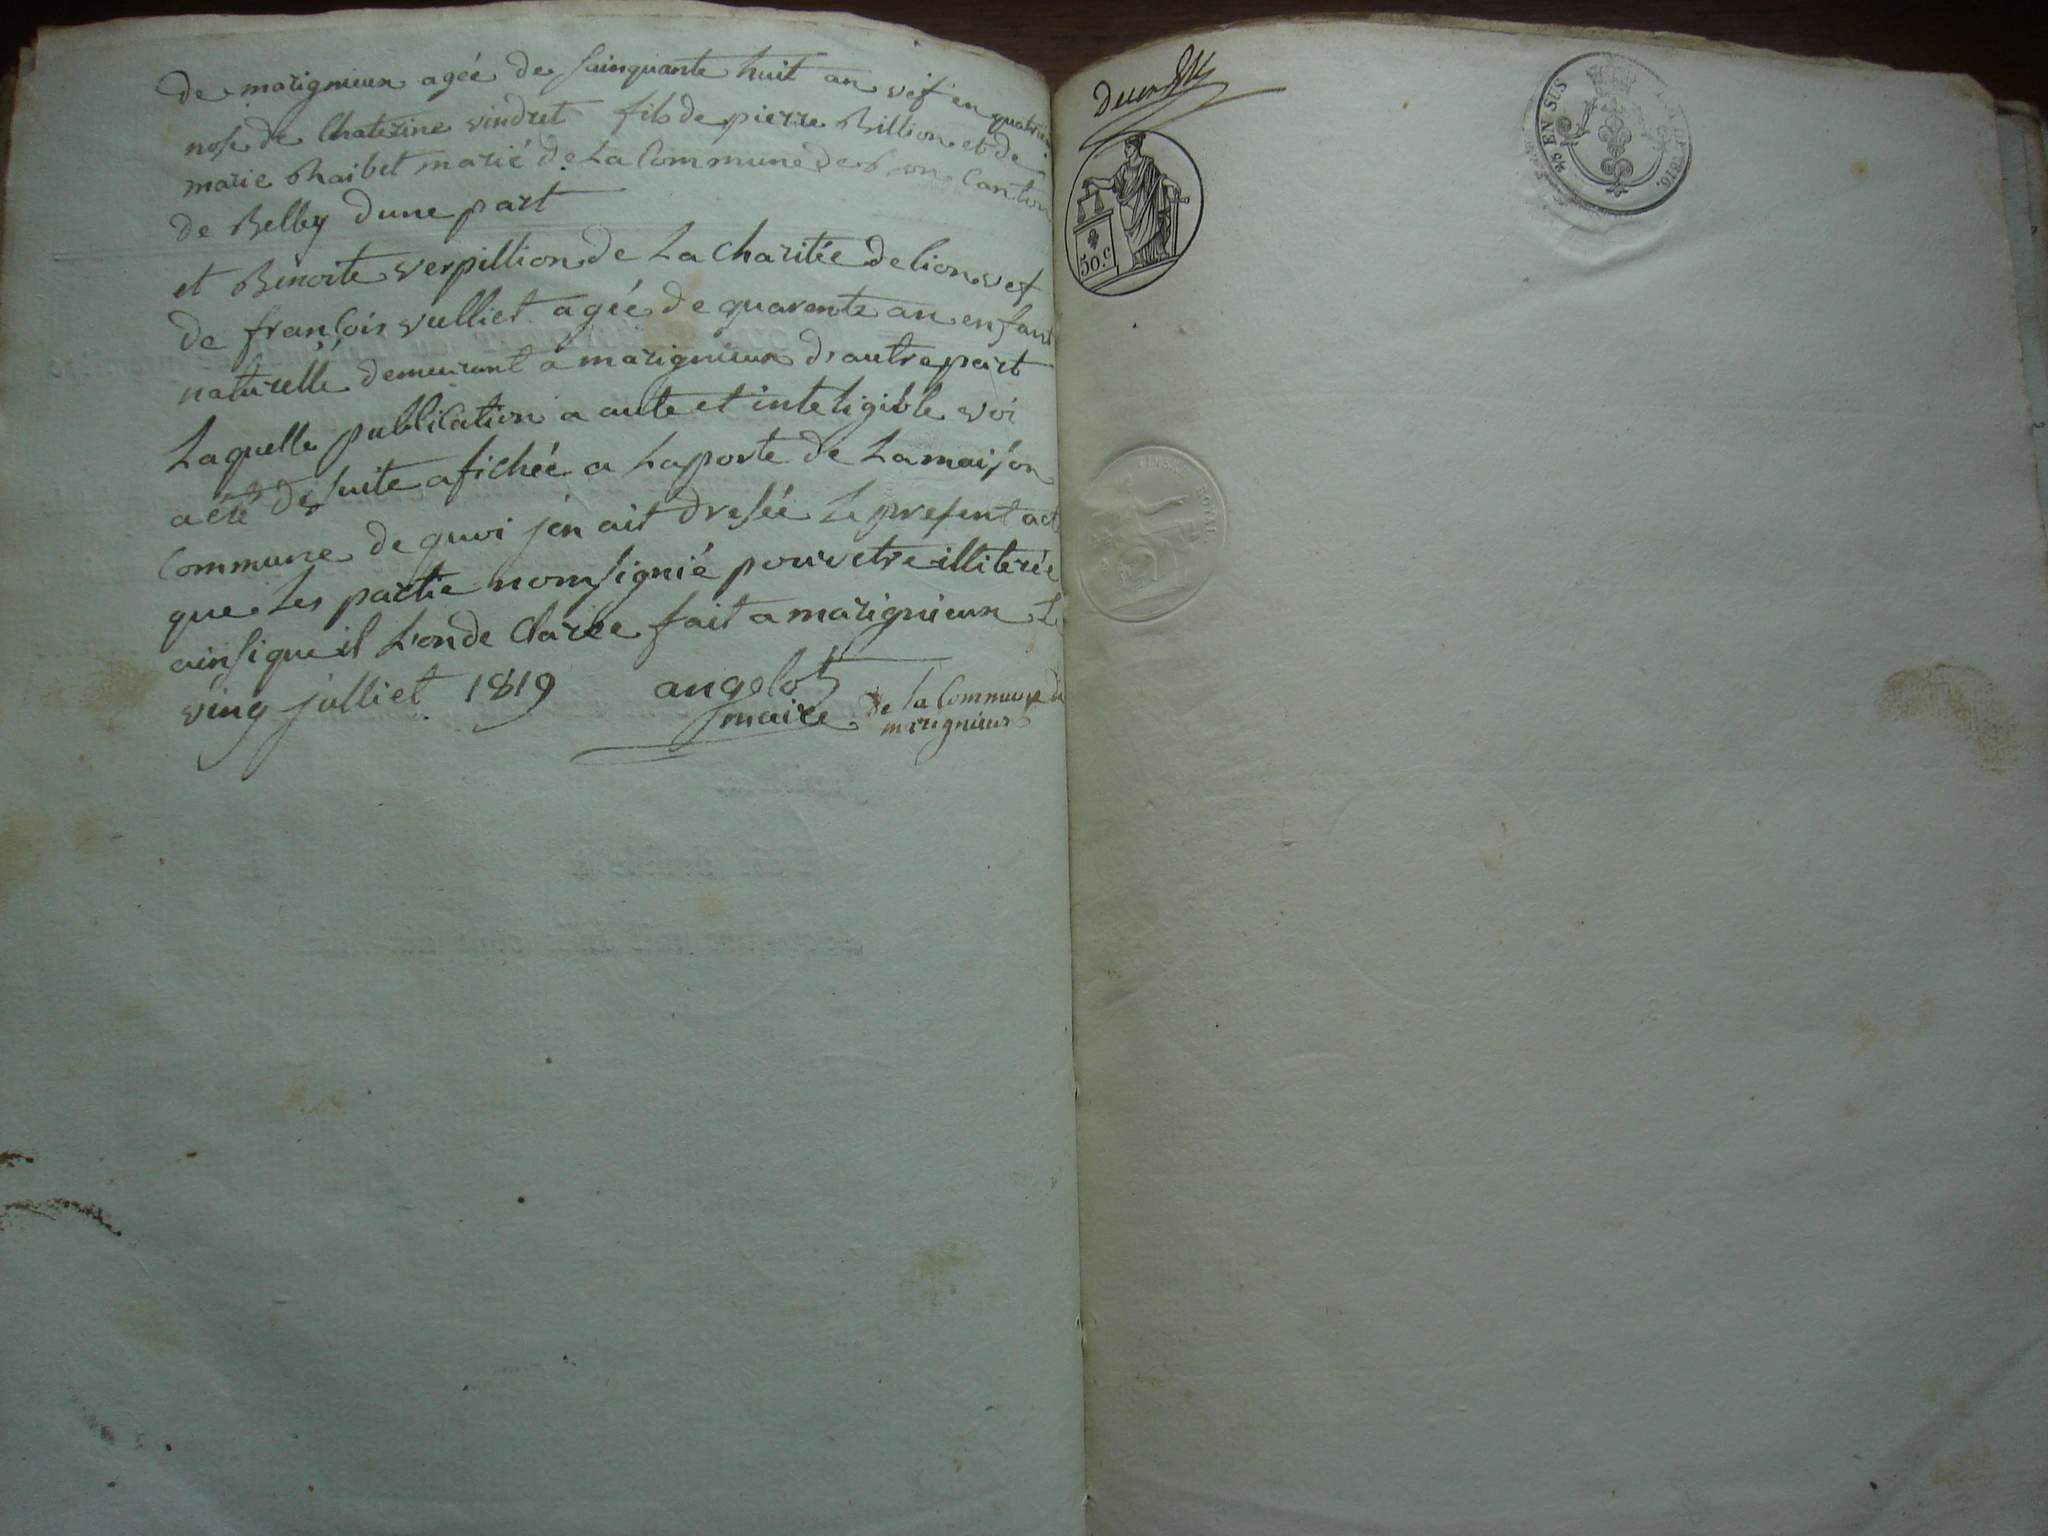 de marignieux agée de sainquante huit an vef en quatrie
nose de Chaterine vindret fils de pierre Billion et de
marie Chaibet marié de La Commune de Bons Canton
de Belley dune part
et Benoite verpillion de La charitée de lion vef
de françois vulliet agée de quarente an enfant
naturelle demeurant a marignieux d'autre part
Laquelle publication a aute et inteligible voi
a été de suite afichée a La porte de La maison
Commune de quoi j'en ait dresée Le present act
que Les partie nom signié pour etre illiterée
ainsi que il L'on de Claree fait a marignieux Le
ving julliet 1819 angelot
maire de la Commune de
marignieux
50.c
EN SUS
DE 1816.
ROYAL